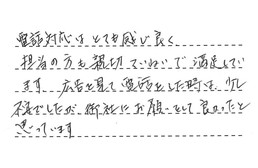 電話対応はとても感じ良く
担当の方も親切ていねいで満足してい
ます 広告を見て電話をした時は、少し
不安でしたが 御社にお願いをして良かったと
思っています